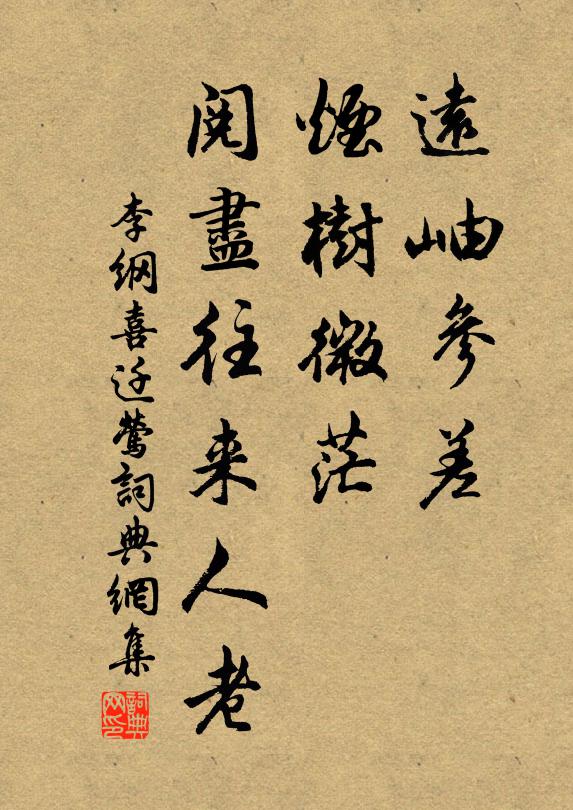 遠岫參差
煙樹微茫
閱盡往来人老
李綱喜迁鶯詞典網集
詞典网印